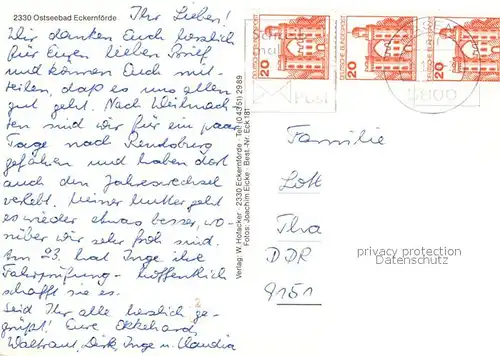 2330 Ostseebad Eckernförde
Ihr Lieben!
Wir danken Euch herzlich
für Euren lieben Brief
und können Euch mit-
teilen, daß es uns allen
gut geht. Nach Weihnach-
ten sind wir für ein paar
Tage nach Rendsburg
gefahren und haben dort
auch den Jahreswechsel
verlebt. Meiner Mutter geht
es wieder etwas besser, wo-
rüber wir sehr froh sind.
Am 23. hat Inge ihre
Fahrprüfung - hoffentlich
schafft sie es.
Seid Ihr alle herzlich ge-
grüßt! Eure Ekkehard,
Waltraut, Dirk, Inge u. Claudia
Verlag: W. Hofacker · 2330 Eckernförde · Tel. (04351) 2989
Fotos: Joachim Eicke · Best.-Nr. Eck 181
20 DEUTSCHE BUNDESPOST
20 DEUTSCHE BUNDESPOST
20
Post
Familie
Lott
Tha
DDR
9151
privacy protection
Datenschutz